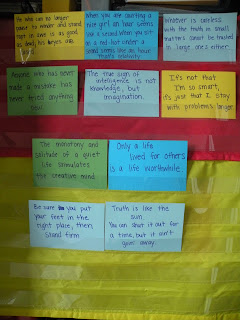 He who can no longer
pause to wonder and stand
rapt in awe is as good
as dead; his eyes are
When you are courting a
nice girl an hour seems
like a second. When you sit
on a red-hot cinder a
second seems like an hour.
that's relativity.
Whoever is careless
with the truth in small
matters cannot be trusted
in large ones either.
Anyone who has never
made a mistake has
never tried anything
new
The true sign of
intelligence is not
knowledge, but
imagination.
It's not that
I'm so smart,
it's just that I stay
with problems longer
The monotony and
solitude of a quiet
life stimulates
the creative mind.
Only a life
lived for others
is a life worthwhile
Be sure you put
your feet in the
right place, then
stand firm
Truth is like the
sun.
You can shut it out for
a time, but it ain't
goin' away.